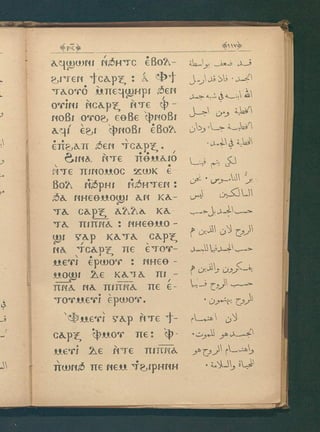 ⲣⲓⲍ
١١٧
ⲁϥϣⲱⲛⲓ ⲛ̀ϧⲏⲧⲥ ⲉ̀ⲃⲟⲗ-
ϩⲓⲧⲉⲛ ϯⲥⲁⲣⲝ : ⲁ̀ Ⲫϯ
ⲧⲁⲟⲩⲟ̀ ⲙ̀ⲡⲉϥϣⲏⲣⲓ ϧⲉⲛ
ⲟⲩⲓ̀ⲛⲓ ⲛ̀ⲥⲁⲣⲝ ⲛ̀ⲧⲉ ⲫ̀-
ⲛⲟⲃⲓ ⲟⲩⲟϩ ⲉⲑⲃⲉ ⲫ̀ⲛⲟⲃⲓ
ⲫ̀ⲛⲟⲃⲓ ⲉ̀ⲃⲟⲗ
ϧⲉⲛ ϯⲥⲁⲣⲝ .
Ϩⲓⲛⲁ ⲛ̀ⲧⲉ ⲡⲓⲑ̀ⲙⲁⲓⲟ̀
ⲛ̀ⲧⲉ ⲡⲓⲛⲟⲙⲟⲥ ϫⲱⲕ ⲉ̀-
ⲃⲟⲗ ⲛ̀ϧⲣⲏⲓ ⲛ̀ϧⲏⲧⲉⲛ :
ϧⲁ ⲛⲏⲉⲑⲙⲟϣⲓ ⲁⲛ ⲕⲁ-
ⲧⲁ ⲥⲁⲣⲝ ⲁⲗⲗⲁ ⲕⲁ
ⲧⲁ ⲡⲓⲡ̅ⲛ̅ⲁ̅ : ⲛⲏⲉⲑⲙⲟ-
ϣⲓ ⲅⲁⲣ ⲕⲁⲧⲁ ⲥⲁⲣⲝ
ⲛⲁ ϯⲥⲁⲣⲝ ⲡⲉ ⲉ̀ⲧⲟⲩ-
ⲙⲉⲩⲓ̀ ⲉ̀ⲣⲱⲟⲩ : ⲛⲏⲉⲑ-
ⲙⲟϣⲓ ⲇⲉ ⲕⲁⲧⲁ ⲡⲓ -
ⲡ̅ⲛ̅ⲁ̅ ⲛⲁ ⲡⲓⲡ̅ⲛ̅ⲁ̅ ⲡⲉ ⲉ̀-
ⲧⲟⲩⲙⲉⲩⲓ̀ ⲉ̀ⲣⲱⲟⲩ.
Ⲫ̀ⲙⲉⲩⲓ̀ ⲅⲁⲣ ⲛ̀ⲧⲉ ϯ-
ⲥⲁⲣⲝ ⲫ̀ⲙⲟⲩ ⲡⲉ: ⲫ̀-
ⲙⲉⲩⲓ̀ ⲇⲉ ⲛ̀ⲧⲉ ⲡⲓⲡ̅ⲛ̅ⲁ̅
ⲡ̀ⲱⲛϧ ⲡⲉ ⲛⲉⲙ ϯϩⲓⲣⲏⲛⲏ
قد ضعف بواسطة
الجسد. فان الله ارسل
ابنه فى شبه جسد
الخطية ومن اجل
الخطية ودان
الخطية فى الجسد.
لكى يتم فينا
برّ الناموس. نحن
السالكين ليس
حسب الجسد بل حسب
الروح لان الذين هم
حسب الجسد
يفتكرون والذين هم
حسب الروح فبما
للروح يهتمون.
لان اهتمام
الجسد هو الموت.
واهتمام الروح هو
الحياة والسلامة.